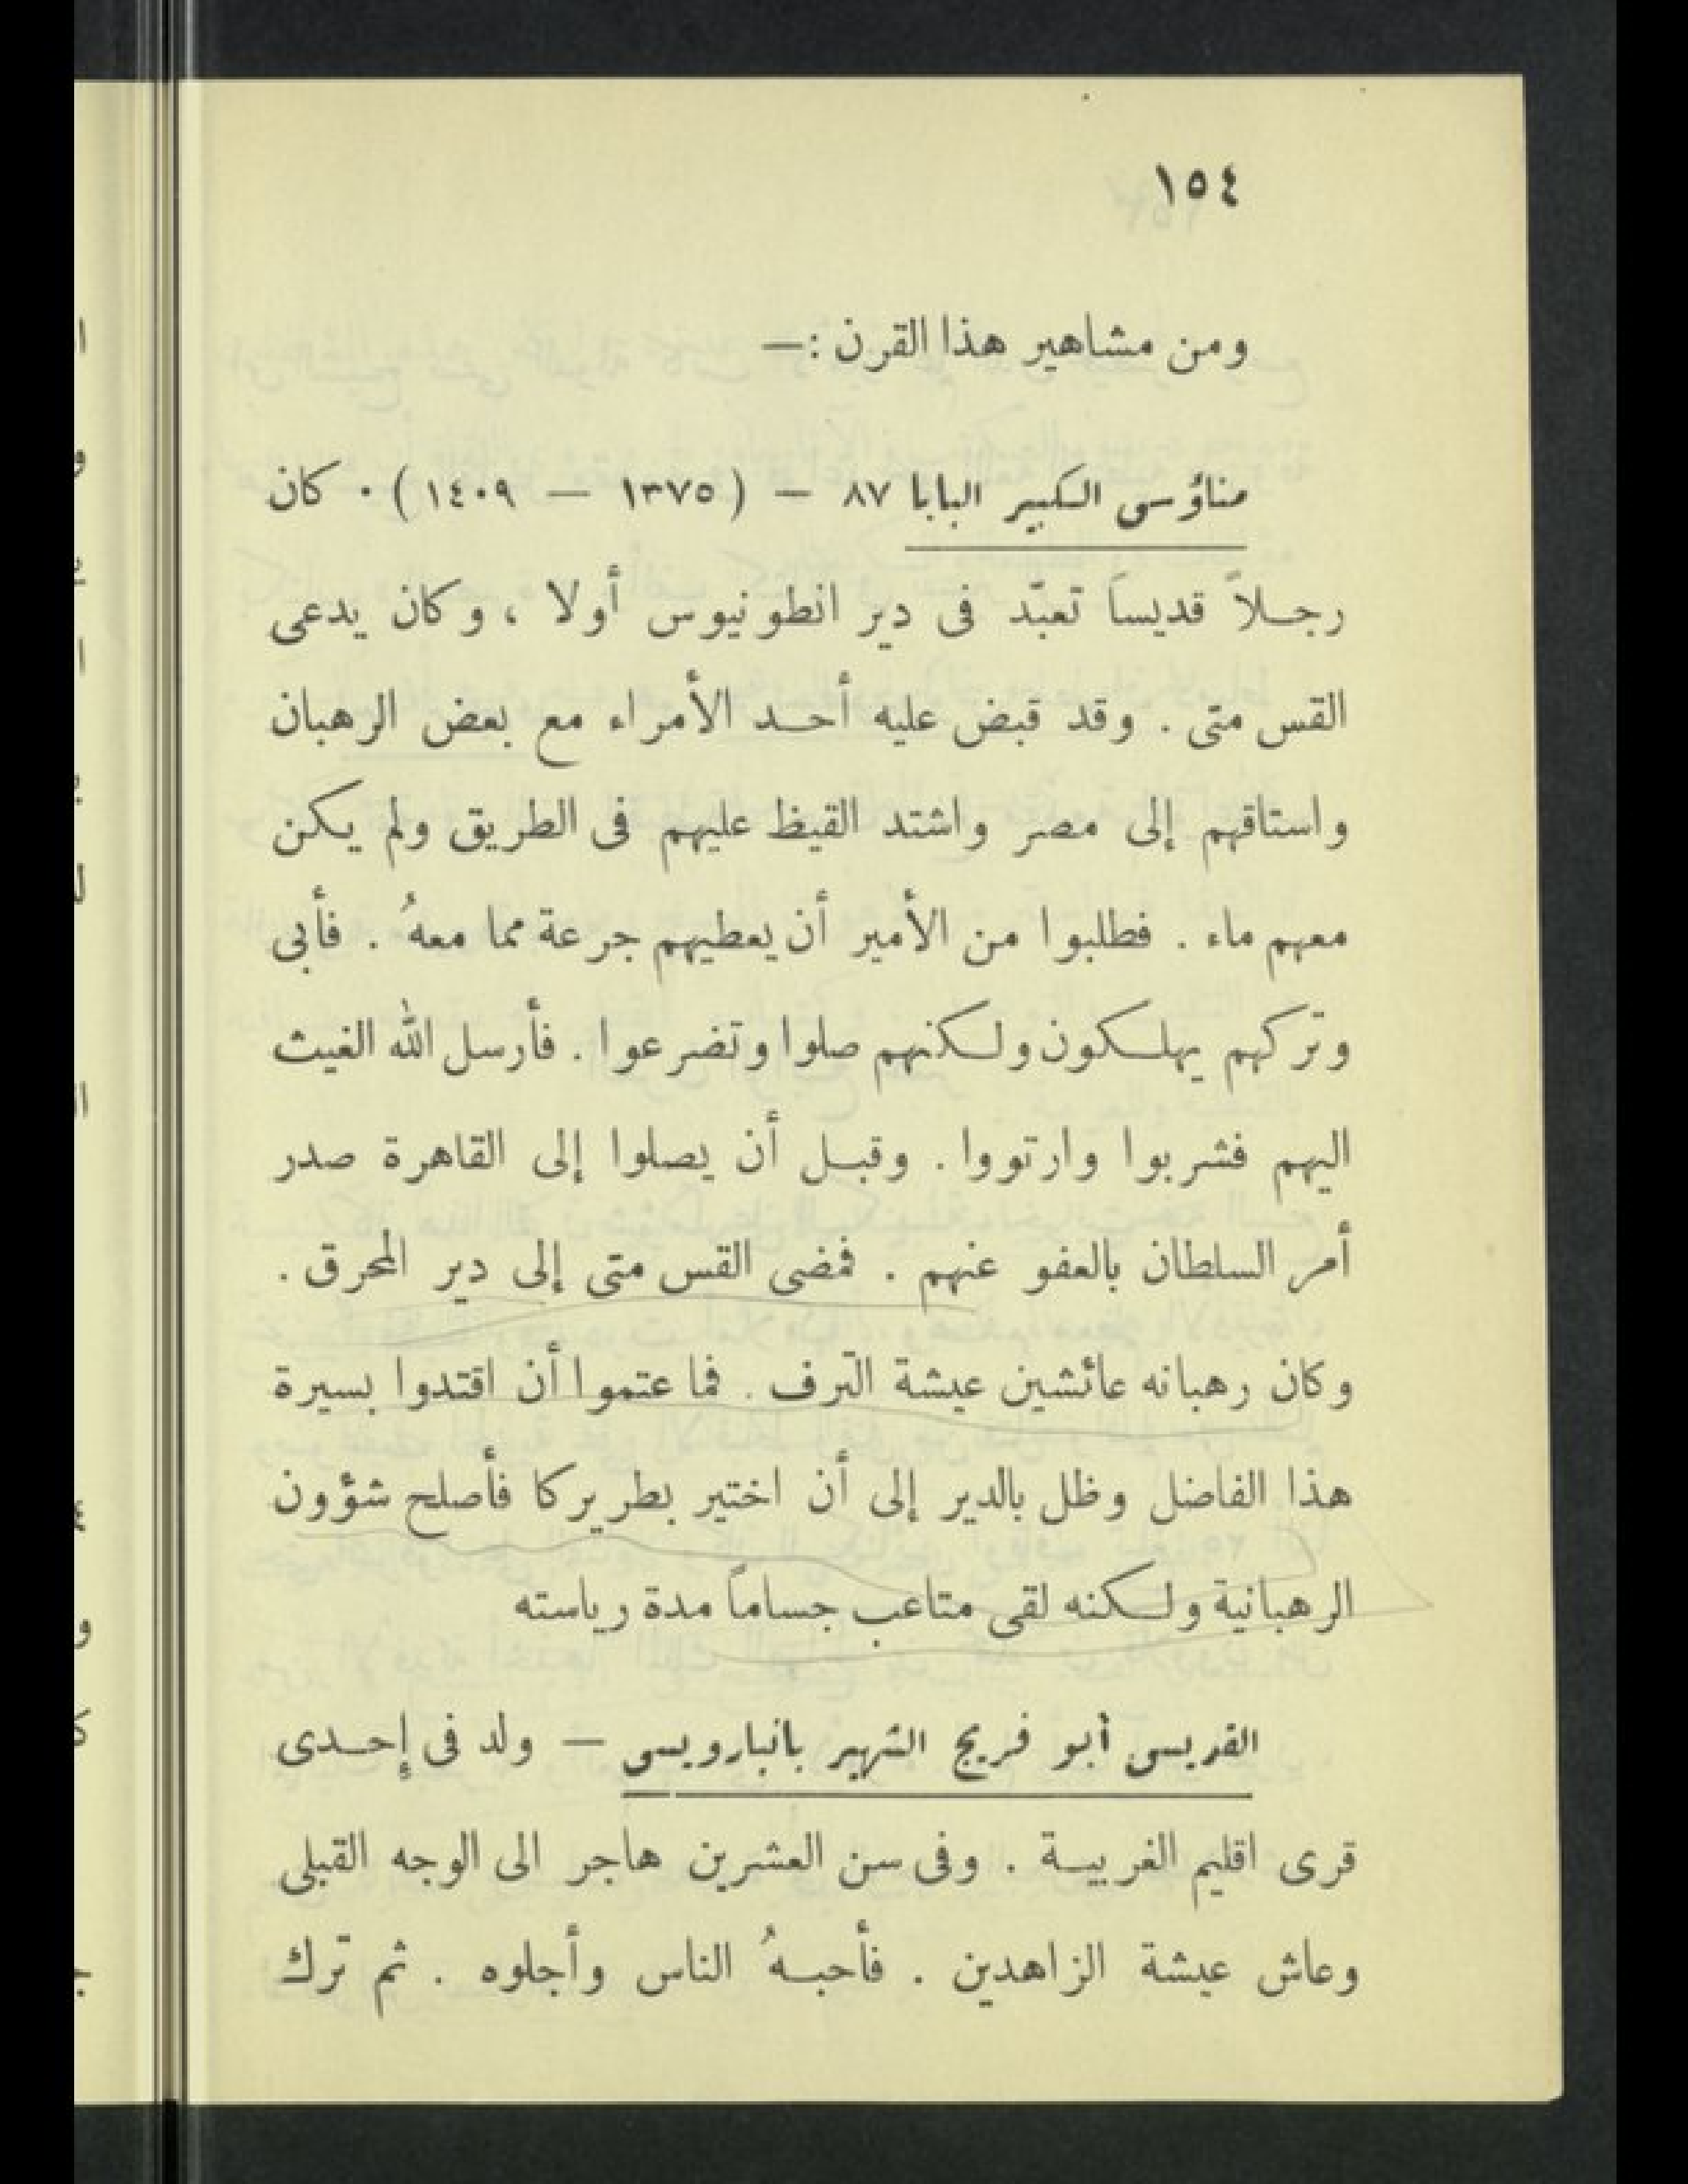 ١٥٤
ومن مشاهير هذا القرن :—
متاؤس الكبير البابا ٨٧ — (١٣٧٥ — ١٤٠٩) . كان
رجلاً قديساً تعبّد فى دير انطونيوس أولا ، وكان يدعى
القس متى . وقد قبض عليه أحد الأمراء مع بعض الرهبان
واستاقهم إلى مصر واشتد القيظ عليهم فى الطريق ولم يكن
معهم ماء . فطلبوا من الأمير أن يعطيهم جرعة مما معهُ . فأبى
وتركهم يهلكون ولكنهم صلوا وتضرعوا . فأرسل الله الغيث
اليهم فشربوا وارتووا . وقبل أن يصلوا إلى القاهرة صدر
أمر السلطان بالعفو عنهم . فمضى القس متى إلى دير المحرق .
وكان رهبانه عائشين عيشة الترف . فما عتموا أن اقتدوا بسيرة
هذا الفاضل وظل بالدير إلى أن اختير بطريركا فأصلح شؤون
الرهبانية ولكنه لقى متاعب جساماً مدة رياسته
القديس أبو فريج الشهير بانبارويس — ولد فى إحدى
قرى اقليم الغربية . وفى سن العشرين هاجر الى الوجه القبلى
وعاش عيشة الزاهدين . فأحبهُ الناس وأجلوه . ثم ترك